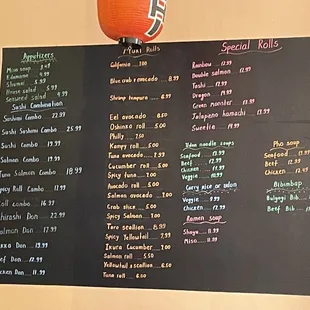 Appetizers
Miso soup
Edamame 4.99
Shumai 5.99
House salad 5.99
Seaweed salad 4.99
Sushi Combination
Sashimi Combo 22.99
Sushi Sashimi Combo 25.99
Sushi Combo 19.99
Salmon Combo 19.99
Tuna Salmon Combo 18.99
Spicy Roll Combo 17.99
Roll Combo 16.99
Chirashi Don 22.99
Salmon Don 17.99
Don 19.99
Beef Don 12.99
Chicken Don 11.99
Rolls
California
Blue crab & avocado 8.99
Shrimp tempura 6.99
Eel avocado 8.50
Oshinko roll 5.00
Philly 7.00
Kampy roll 5.00
Tuna avocado
Cucumber roll 5.00
Spicy tuna 7.00
Avocado roll 5.00
Salmon avocado 7.00
Crab stick 5.00
Spicy Salmon 7.00
Taro scallion 8.99
Spicy Yellowtail 7.00
Ikura Cucumber 7.00
Salmon roll 5.50
Yellowtail & scallion 6.50
Tuna roll 6.50
Special Rolls
Rainbow 12.99
Double salmon 12.99
Toshi 12.99
Dragon 14.99
Green Monster 13.99
Jalapeno hamachi 13.99
Sweetie 14.99
Udon noodle soups
Seafood 13.99
Beef 12.99
Chicken 11.99
Veggie 10.99
Curry rice or udon
Veggie 9.99
Chicken 12.99
Ramen soup
Shoyu 11.99
Miso 11.99
Pho soup
Seafood 13.99
Beef 12.99
Chicken 11.99
Bibimbap
Bulgogi Bib
Beef Bib